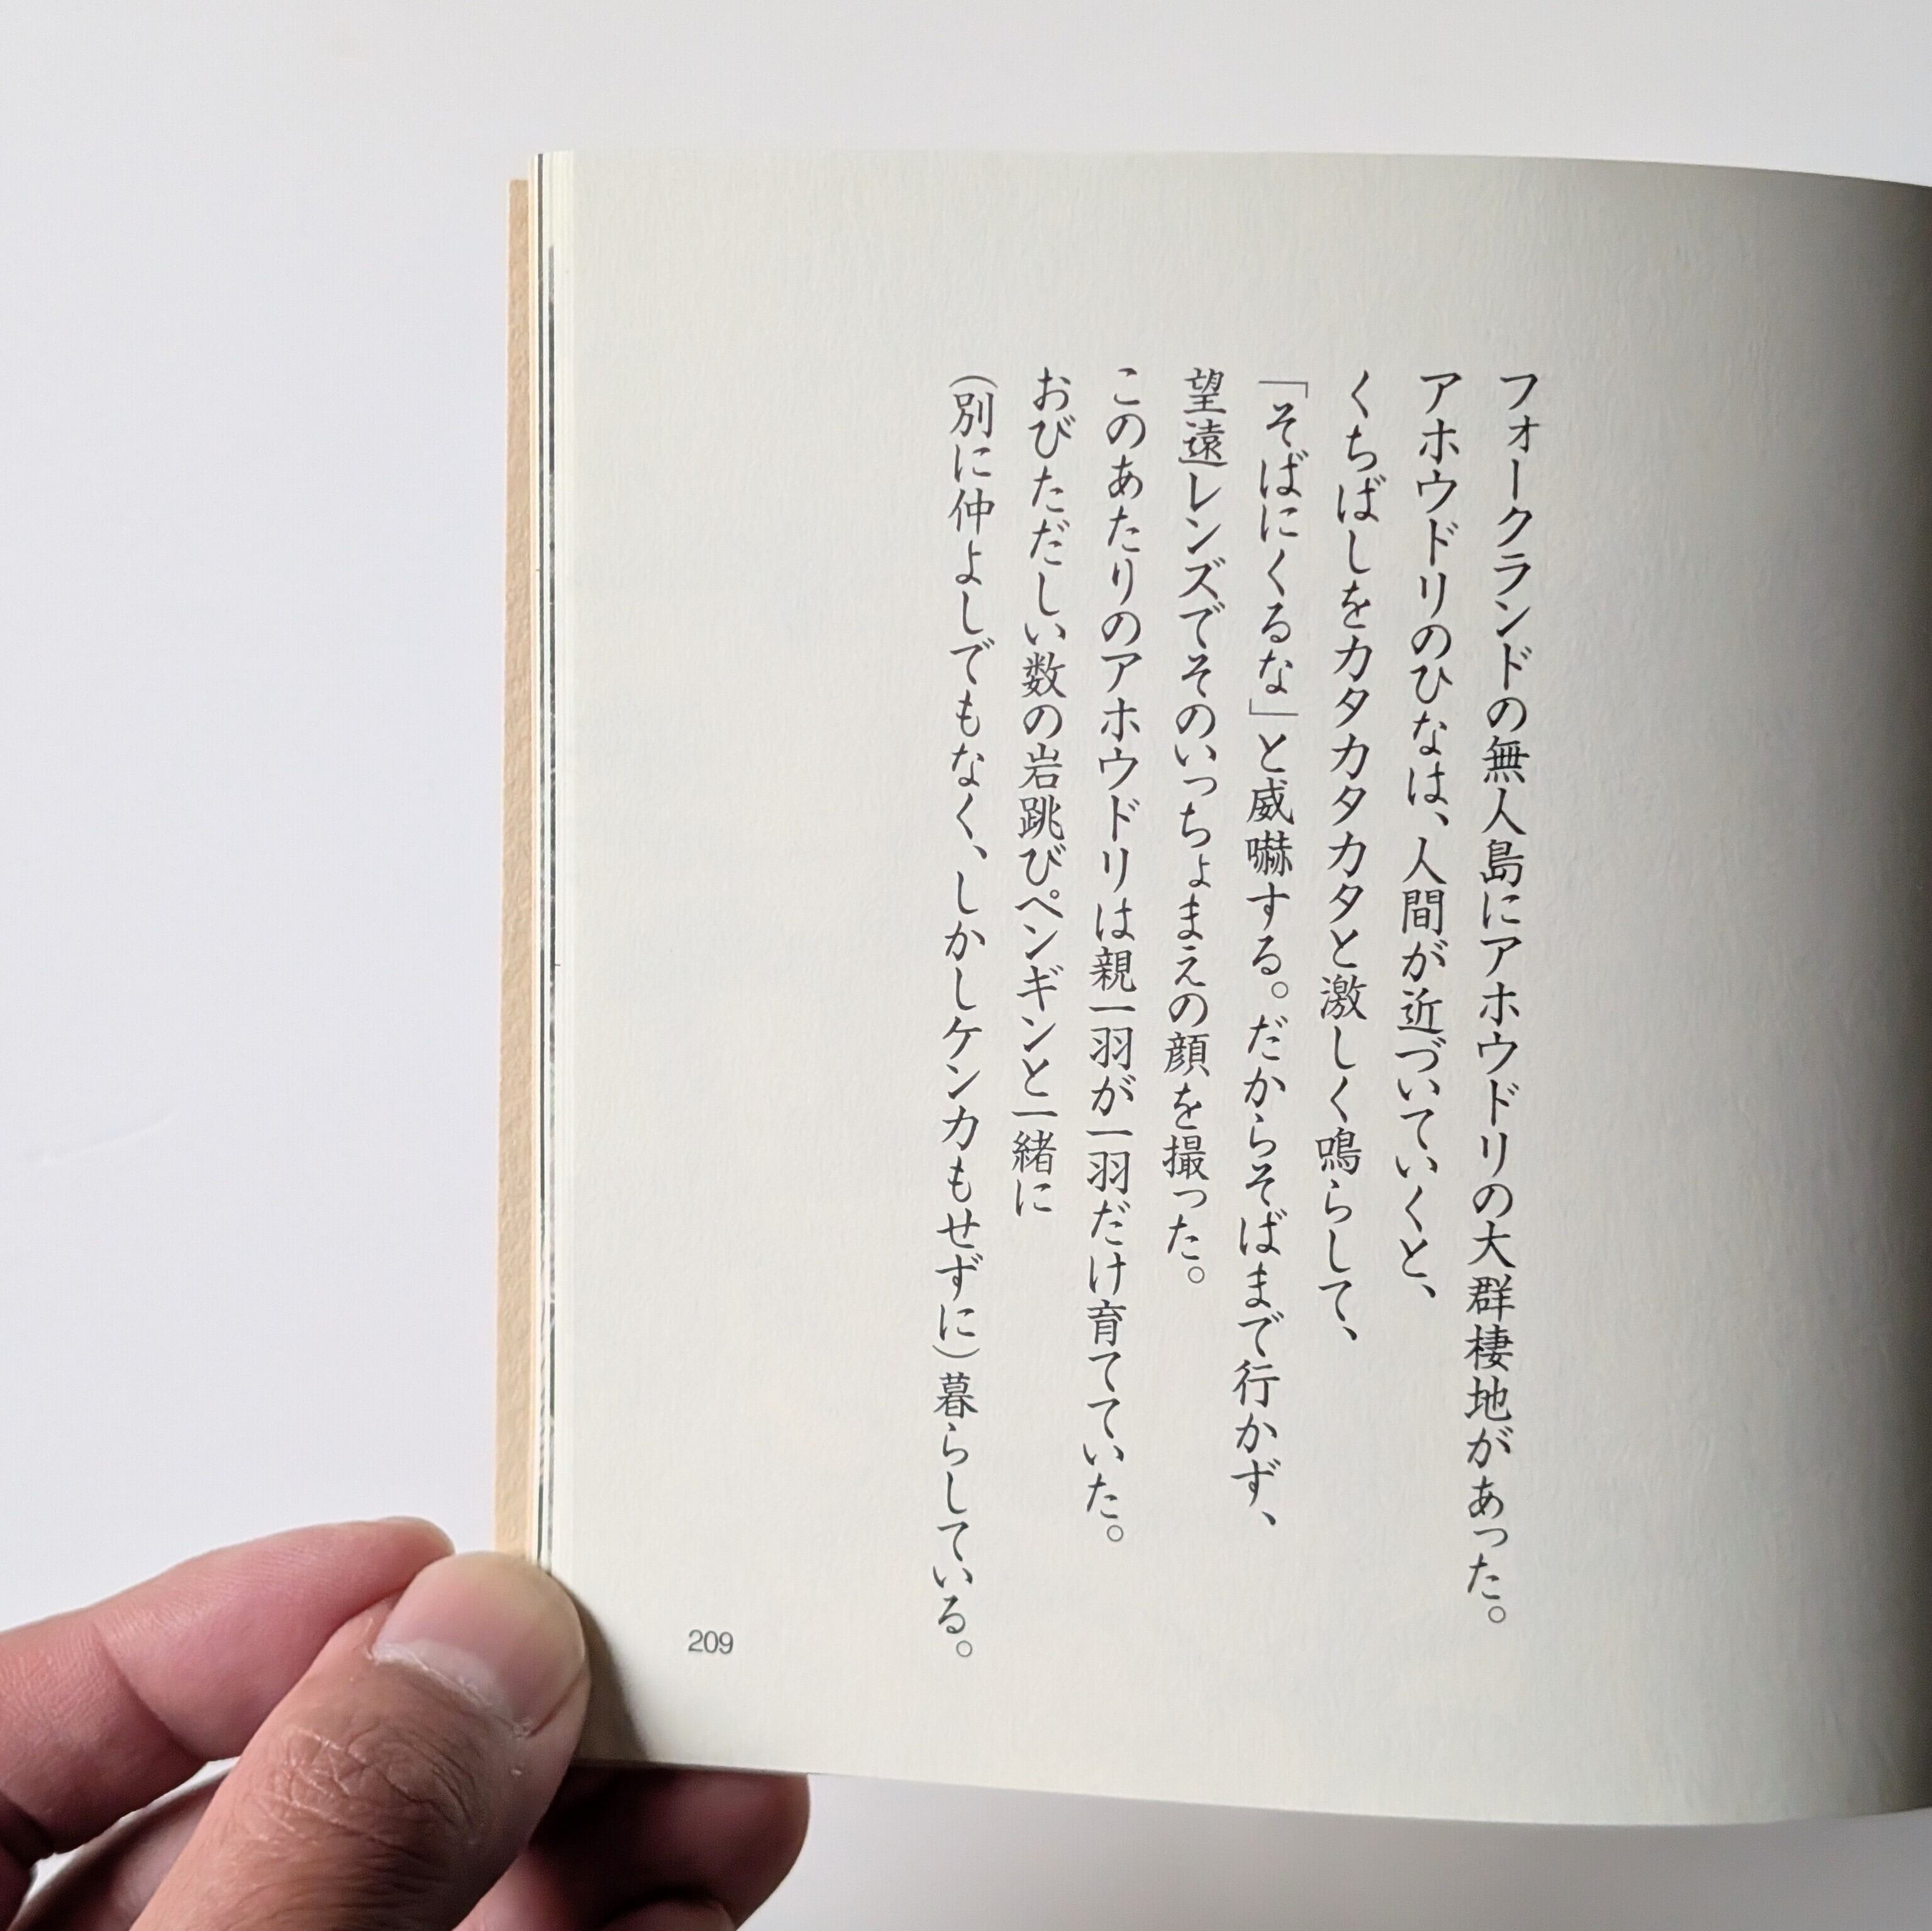 フォークランドの無人島にアホウドリの大群棲地があった。
アホウドリのひなは、人間が近づいていくと、
くちばしをカタカタカタと激しく鳴らして、
「そばにくるな」と威嚇する。だからそばまで行かず、
望遠レンズでそのいっちょまえの顔を撮った。
このあたりのアホウドリは親一羽が一羽だけ育てていた。
おびただしい数の岩跳びペンギンと一緒に
（別に仲よしでもなく、しかしケンカもせずに）暮らしている。
209